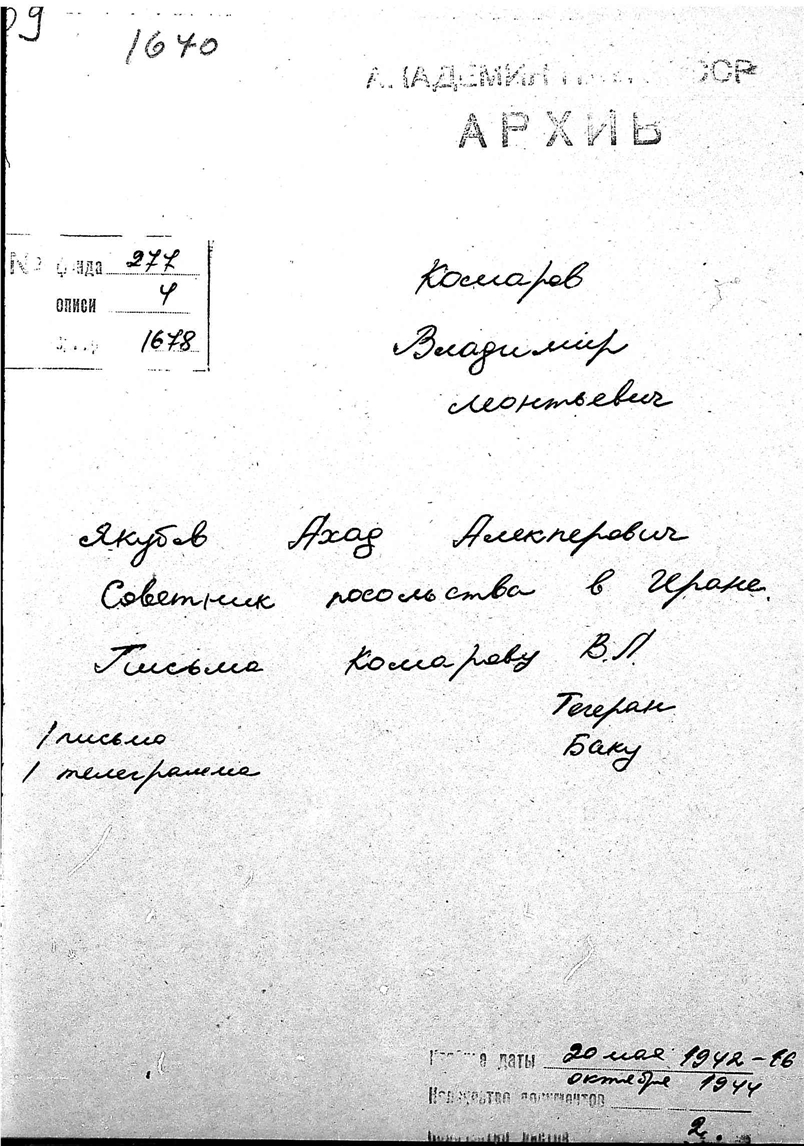 09
1640
АКАДЕМИЯ НАУК СССР
АРХИВ
№ фонда 277
описи 4
1678
Комаров
Владимир
Леонтьевич
Якубов Ахад Алекперович
Советник посольства в Иране.
Письма Комарову В.Л.
Тегеран
1 письмо
Баку
1 телеграмма
Крайние даты 20 мая 1942-16
октября 1944
Количество документов
2.
Количество листов